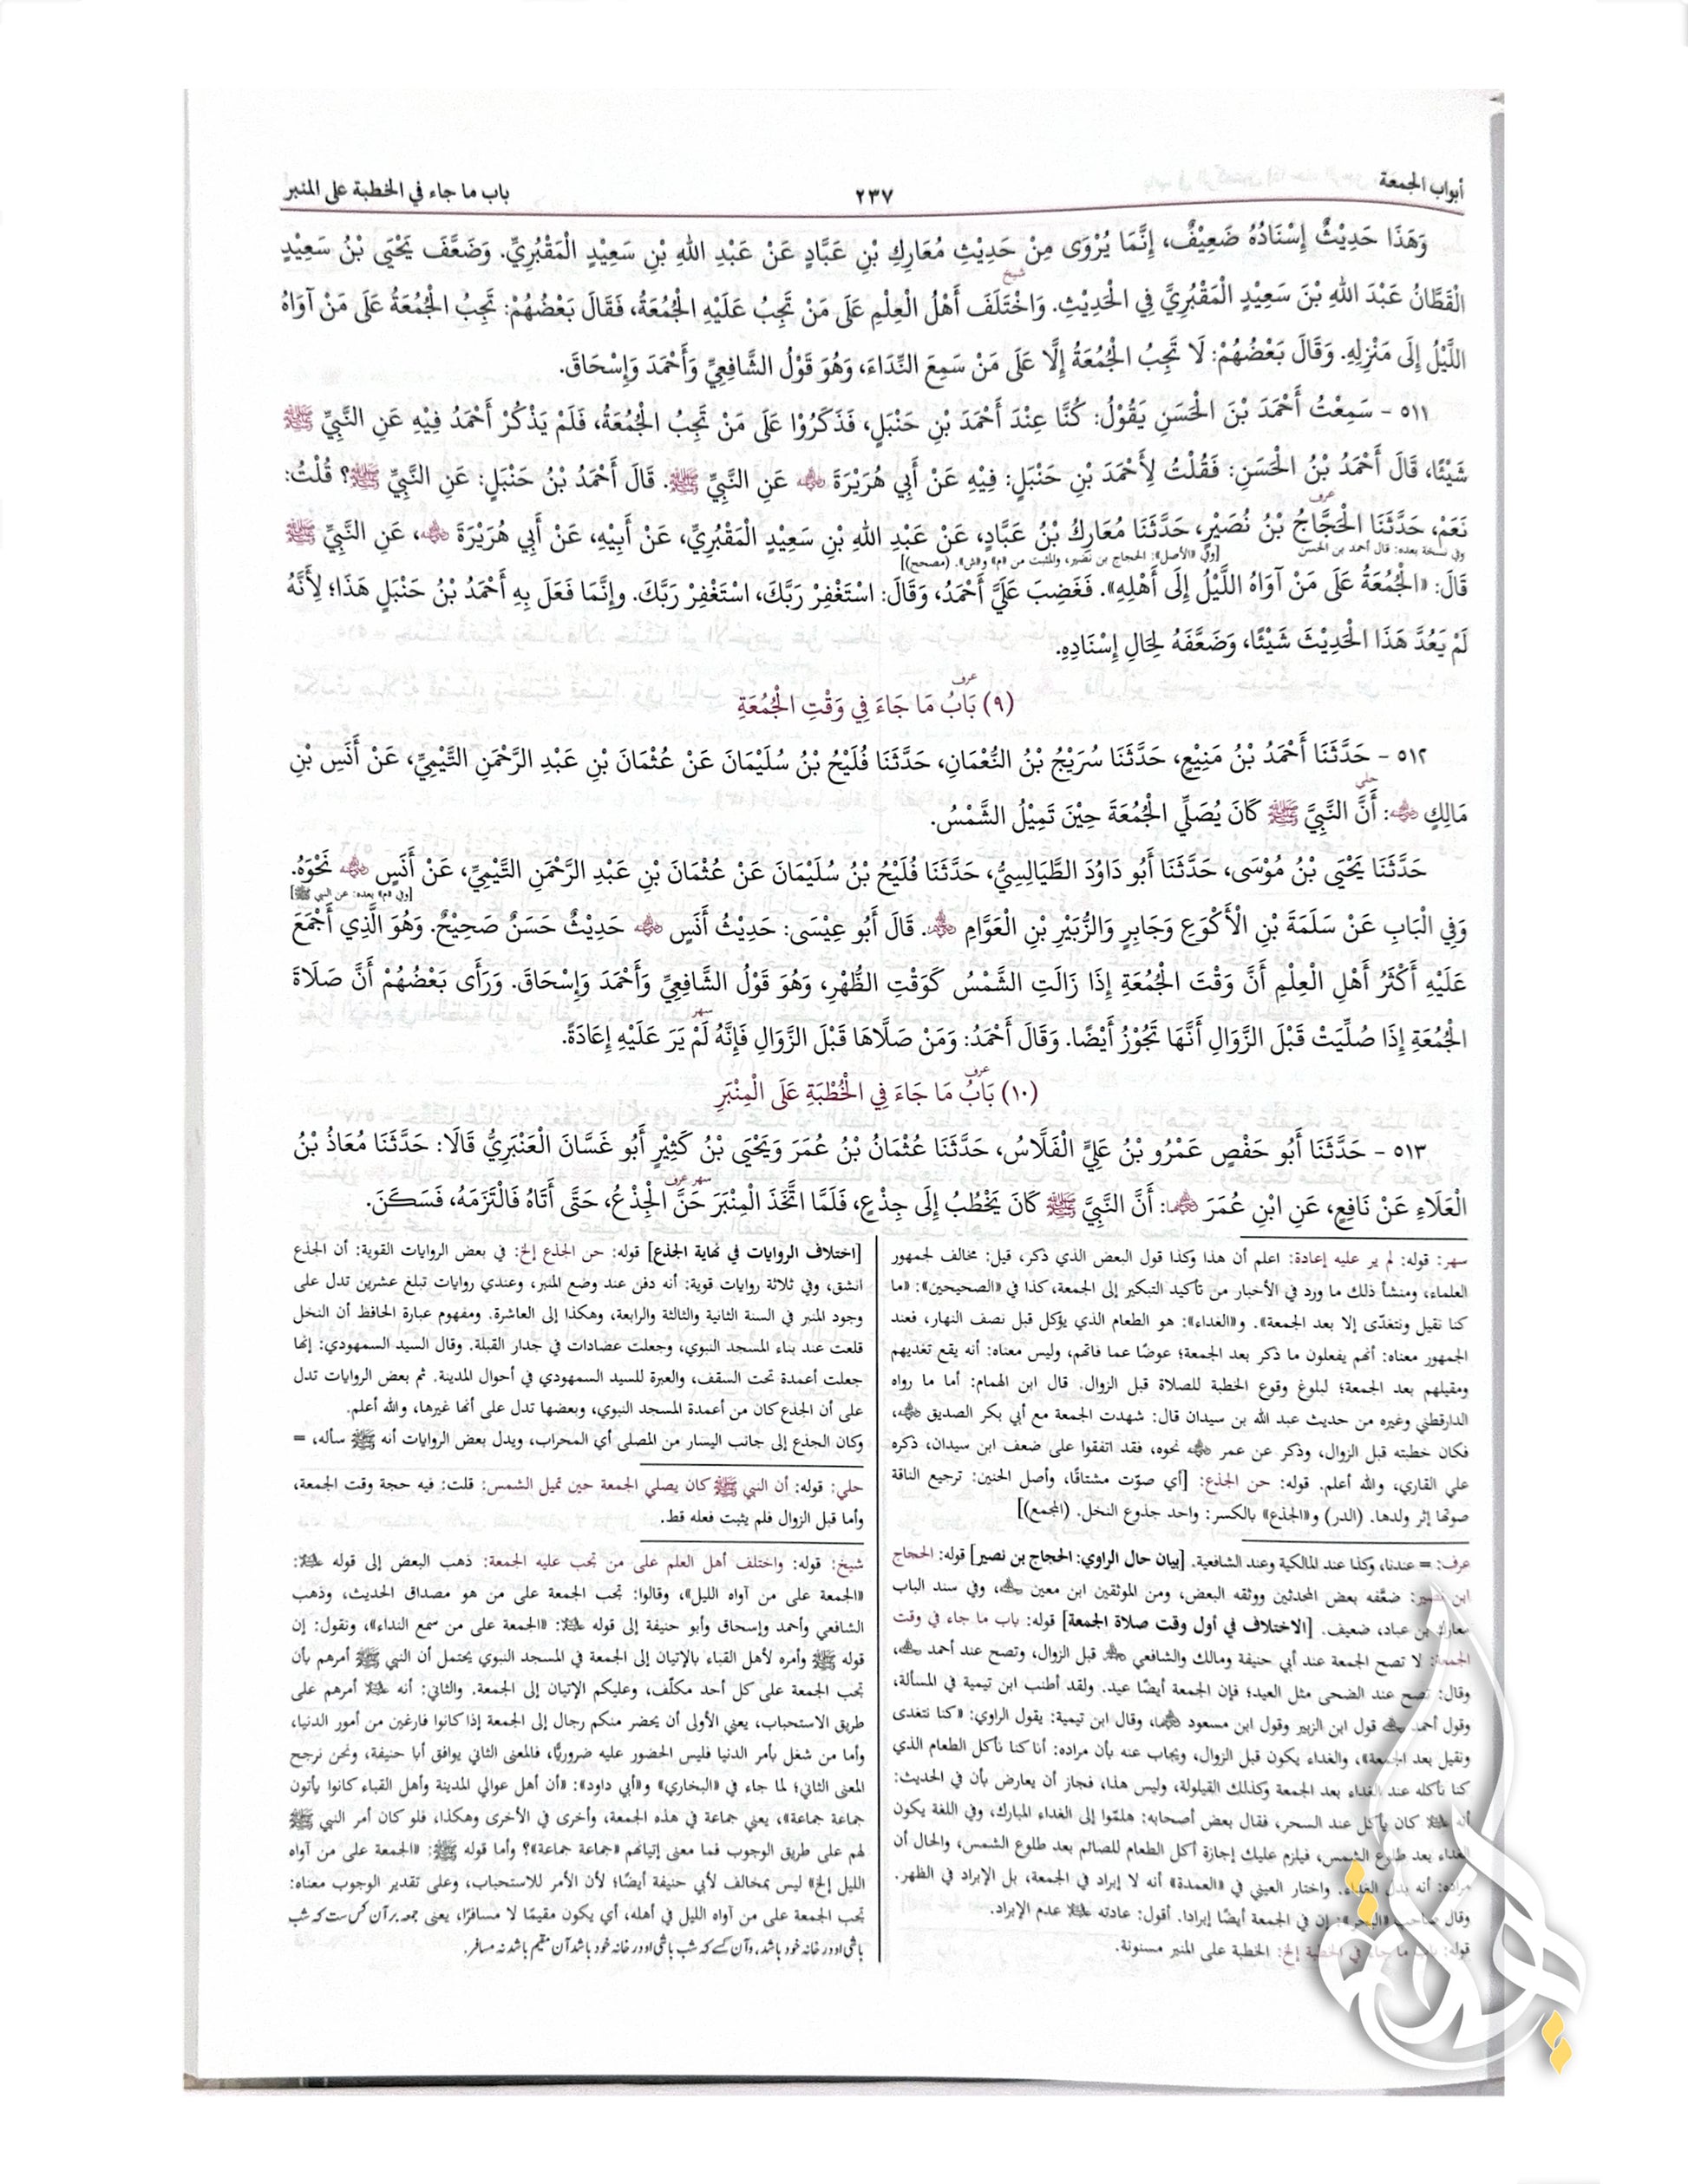 أبواب الجمعة ٢٣٧ باب ما جاء في الخطبة على المنبر
وَهَذَا حَدِيْثٌ إِسْنَادُهُ ضَعِيْفٌ، إِنَّمَا يُرْوَى مِنْ حَدِيْثِ مُعَارِكِ بْنِ عَبَّادٍ عَنْ عَبْدِ اللهِ بْنِ سَعِيْدٍ الْمَقْبُرِيِّ. وَضَعَّفَ يَحْيَى بْنُ سَعِيْدٍ
شيخ
الْقَطَّانُ عَبْدَ اللهِ بْنَ سَعِيْدٍ الْمَقْبُرِيَّ فِي الْحَدِيْثِ. وَاخْتَلَفَ أَهْلُ الْعِلْمِ عَلَى مَنْ تَجِبُ عَلَيْهِ الْجُمُعَةُ، فَقَالَ بَعْضُهُمْ: تَجِبُ الْجُمُعَةُ عَلَى مَنْ آوَاهُ
اللَّيْلُ إِلَى مَنْزِلِهِ. وَقَالَ بَعْضُهُمْ: لَا تَجِبُ الْجُمُعَةُ إِلَّا عَلَى مَنْ سَمِعَ النِّدَاءَ، وَهُوَ قَوْلُ الشَّافِعِيِّ وَأَحْمَدَ وَإِسْحَاقَ.
٥١١ - سَمِعْتُ أَحْمَدَ بْنَ الْحَسَنِ يَقُوْلُ: كُنَّا عِنْدَ أَحْمَدَ بْنِ حَنْبَلٍ، فَذَكَرُوْا عَلَى مَنْ تَجِبُ الْجُمُعَةُ، فَلَمْ يَذْكُرْ أَحْمَدُ فِيْهِ عَنِ النَّبِيِّ ﷺ
شَيْئًا، قَالَ أَحْمَدُ بْنُ الْحَسَنِ: فَقُلْتُ لِأَحْمَدَ بْنِ حَنْبَلٍ: فِيْهِ عَنْ أَبِي هُرَيْرَةَ ؓ عَنِ النَّبِيِّ ﷺ. قَالَ أَحْمَدُ بْنُ حَنْبَلٍ: عَنِ النَّبِيِّ ﷺ؟ قُلْتُ:
عرف
نَعَمْ، حَدَّثَنَا الْحَجَّاجُ بْنُ نُصَيْرٍ، حَدَّثَنَا مُعَارِكُ بْنُ عَبَّادٍ، عَنْ عَبْدِ اللهِ بْنِ سَعِيْدٍ الْمَقْبُرِيِّ، عَنْ أَبِيْهِ، عَنْ أَبِي هُرَيْرَةَ ؓ، عَنِ النَّبِيِّ ﷺ
وفي نسخة بعده: قال أحمد بن الحسن [وفي «الأصل»: الحجاج بن نصير، والمثبت من «م» و«ش». (مصحح)]
قَالَ: «الْجُمُعَةُ عَلَى مَنْ آوَاهُ اللَّيْلُ إِلَى أَهْلِهِ». فَغَضِبَ عَلَيَّ أَحْمَدُ، وَقَالَ: اسْتَغْفِرْ رَبَّكَ، اسْتَغْفِرْ رَبَّكَ. وإِنَّمَا فَعَلَ بِهِ أَحْمَدُ بْنُ حَنْبَلٍ هَذَا؛ لِأَنَّهُ
لَمْ يَعُدَّ هَذَا الْحَدِيْثَ شَيْئًا، وَضَعَّفَهُ لِحَالِ إِسْنَادِهِ.
عرف
(٩) بَابُ مَا جَاءَ فِي وَقْتِ الْجُمُعَةِ
٥١٢ - حَدَّثَنَا أَحْمَدُ بْنُ مَنِيْعٍ، حَدَّثَنَا سُرَيْجُ بْنُ النُّعْمَانِ، حَدَّثَنَا فُلَيْحُ بْنُ سُلَيْمَانَ عَنْ عُثْمَانَ بْنِ عَبْدِ الرَّحْمَنِ التَّيْمِيِّ، عَنْ أَنَسِ بْنِ
حلي
مَالِكٍ ؓ: أَنَّ النَّبِيَّ ﷺ كَانَ يُصَلِّي الْجُمُعَةَ حِيْنَ تَمِيْلُ الشَّمْسُ.
حَدَّثَنَا يَحْيَى بْنُ مُوْسَى، حَدَّثَنَا أَبُو دَاوُدَ الطَّيَالِسِيُّ، حَدَّثَنَا فُلَيْحُ بْنُ سُلَيْمَانَ عَنْ عُثْمَانَ بْنِ عَبْدِ الرَّحْمَنِ التَّيْمِيِّ، عَنْ أَنَسٍ ؓ نَحْوَهُ.
[وفي «م» بعده: عن النبي ﷺ]
وَفِي الْبَابِ عَنْ سَلَمَةَ بْنِ الْأَكْوَعِ وَجَابِرٍ وَالزُّبَيْرِ بْنِ الْعَوَّامِ ؓ. قَالَ أَبُو عِيْسَى: حَدِيْثُ أَنَسٍ ؓ حَدِيْثٌ حَسَنٌ صَحِيْحٌ. وَهُوَ الَّذِي أَجْمَعَ
عَلَيْهِ أَكْثَرُ أَهْلِ الْعِلْمِ أَنَّ وَقْتَ الْجُمُعَةِ إِذَا زَالَتِ الشَّمْسُ كَوَقْتِ الظُّهْرِ، وَهُوَ قَوْلُ الشَّافِعِيِّ وَأَحْمَدَ وَإِسْحَاقَ. وَرَأَى بَعْضُهُمْ أَنَّ صَلَاةَ
سهر
الْجُمُعَةِ إِذَا صُلِّيَتْ قَبْلَ الزَّوَالِ أَنَّهَا تَجُوْزُ أَيْضًا. وَقَالَ أَحْمَدُ: وَمَنْ صَلَّاهَا قَبْلَ الزَّوَالِ فَإِنَّهُ لَمْ يَرَ عَلَيْهِ إِعَادَةً.
عرف
(١٠) بَابُ مَا جَاءَ فِي الْخُطْبَةِ عَلَى الْمِنْبَرِ
٥١٣ - حَدَّثَنَا أَبُو حَفْصٍ عَمْرُو بْنُ عَلِيٍّ الْفَلَّاسُ، حَدَّثَنَا عُثْمَانُ بْنُ عُمَرَ وَيَحْيَى بْنُ كَثِيْرٍ أَبُو غَسَّانَ الْعَنْبَرِيُّ قَالَا: حَدَّثَنَا مُعَاذُ بْنُ
سهر عرف
الْعَلَاءِ عَنْ نَافِعٍ، عَنِ ابْنِ عُمَرَ ؓ: أَنَّ النَّبِيَّ ﷺ كَانَ يَخْطُبُ إِلَى جِذْعٍ، فَلَمَّا اتَّخَذَ الْمِنْبَرَ حَنَّ الْجِذْعُ، حَتَّى أَتَاهُ فَالْتَزَمَهُ، فَسَكَنَ.
سهر: قوله: لم ير عليه إعادة: اعلم أن هذا وكذا قول البعض الذي ذكر، قيل: مخالف لجمهور
العلماء، ومنشأ ذلك ما ورد في الأخبار من تأكيد التبكير إلى الجمعة، كذا في «الصحيحين»: «ما
كنا نقيل ونتغدّى إلا بعد الجمعة». و«الغداء»: هو الطعام الذي يؤكل قبل نصف النهار، فعند
الجمهور معناه: أنهم يفعلون ما ذكر بعد الجمعة؛ عوضًا عما فاتهم، وليس معناه: أنه يقع تغديهم
ومقيلهم بعد الجمعة؛ لبلوغ وقوع الخطبة للصلاة قبل الزوال. قال ابن الهمام: أما ما رواه
الدارقطني وغيره من حديث عبد الله بن سيدان قال: شهدت الجمعة مع أبي بكر الصديق ؓ،
فكان خطبته قبل الزوال، وذكر عن عمر ؓ نحوه، فقد اتفقوا على ضعف ابن سيدان، ذكره
علي القاري، والله أعلم. قوله: حن الجذع: [أي صوّت مشتاقًا، وأصل الحنين: ترجيع الناقة
صوتها إثر ولدها. (الدر) و«الجذع» بالكسر: واحد جذوع النخل. (المجمع)]
عرف: = عندنا، وكذا عند المالكية وعند الشافعية. [بيان حال الراوي: الحجاج بن نصير] قوله: الحجاج
ابن نصير: ضعّفه بعض المحدثين ووثقه البعض، ومن الموثقين ابن معين ؒ، وفي سند الباب
معارك بن عباد، ضعيف. [الاختلاف في أول وقت صلاة الجمعة] قوله: باب ما جاء في وقت
الجمعة: لا تصح الجمعة عند أبي حنيفة ومالك والشافعي ؒ قبل الزوال، وتصح عند أحمد ؒ،
وقال: تصح عند الضحى مثل العيد؛ فإن الجمعة أيضًا عيد. ولقد أطنب ابن تيمية في المسألة،
وقول أحمد ؒ قول ابن الزبير وقول ابن مسعود ؓ، وقال ابن تيمية: يقول الراوي: «كنا نتغدى
ونقيل بعد الجمعة»، والغداء يكون قبل الزوال، ويجاب عنه بأن مراده: أنا كنا نأكل الطعام الذي
كنا نأكله عند الغداء بعد الجمعة وكذلك القيلولة، وليس هذا، فجاز أن يعارض بأن في الحديث:
أنه ﷺ كان يأكل عند السحر، فقال بعض أصحابه: هلمّوا إلى الغداء المبارك، وفي اللغة يكون
الغداء بعد طلوع الشمس، فيلزم عليك إجازة أكل الطعام للصائم بعد طلوع الشمس، والحال أن
مراده: أنه بدل الغداء. واختار العيني في «العمدة» أنه لا إبراد في الجمعة، بل الإبراد في الظهر.
وقال صاحب «البحر»: إن في الجمعة أيضًا إبرادا. أقول: عادته ﷺ عدم الإبراد.
قوله: باب ما جاء في الخطبة إلخ: الخطبة على المنبر مسنونة.
[اختلاف الروايات في نهاية الجذع] قوله: حن الجذع إلخ: في بعض الروايات القوية: أن الجذع
انشق، وفي ثلاثة روايات قوية: أنه دفن عند وضع المنبر، وعندي روايات تبلغ عشرين تدل على
وجود المنبر في السنة الثانية والثالثة والرابعة، وهكذا إلى العاشرة. ومفهوم عبارة الحافظ أن النخل
قلعت عند بناء المسجد النبوي، وجعلت عضادات في جدار القبلة. وقال السيد السمهودي: إنها
جعلت أعمدة تحت السقف، والعبرة للسيد السمهودي في أحوال المدينة. ثم بعض الروايات تدل
على أن الجذع كان من أعمدة المسجد النبوي، وبعضها تدل على أنها غيرها، والله أعلم.
وكان الجذع إلى جانب اليسار من المصلى أي المحراب، ويدل بعض الروايات أنه ﷺ سأله، =
حلي: قوله: أن النبي ﷺ كان يصلي الجمعة حين تميل الشمس: قلت: فيه حجة وقت الجمعة،
وأما قبل الزوال فلم يثبت فعله قط.
شيخ: قوله: واختلف أهل العلم على من تجب عليه الجمعة: ذهب البعض إلى قوله ﷺ:
«الجمعة على من آواه الليل»، وقالوا: تجب الجمعة على من هو مصداق الحديث، وذهب
الشافعي وأحمد وإسحاق وأبو حنيفة إلى قوله ﷺ: «الجمعة على من سمع النداء»، ونقول: إن
قوله ﷺ وأمره لأهل القباء بالإتيان إلى الجمعة في المسجد النبوي يحتمل أن النبي ﷺ أمرهم بأن
تجب الجمعة على كل أحد مكلّف، وعليكم الإتيان إلى الجمعة. والثاني: أنه ﷺ أمرهم على
طريق الاستحباب، يعني الأولى أن يحضر منكم رجال إلى الجمعة إذا كانوا فارغين من أمور الدنيا،
وأما من شغل بأمر الدنيا فليس الحضور عليه ضروريًّا، فالمعنى الثاني يوافق أبا حنيفة، ونحن نرجح
المعنى الثاني؛ لما جاء في «البخاري» و«أبي داود»: «أن أهل عوالي المدينة وأهل القباء كانوا يأتون
جماعة جماعة»، يعني جماعة في هذه الجمعة، وأخرى في الأخرى وهكذا، فلو كان أمر النبي ﷺ
لهم على طريق الوجوب فما معنى إتيانهم «جماعة جماعة»؟ وأما قوله ﷺ: «الجمعة على من آواه
الليل إلخ» ليس بمخالف لأبي حنيفة أيضًا؛ لأن الأمر للاستحباب، وعلى تقدير الوجوب معناه:
تجب الجمعة على من آواه الليل في أهله، أي يكون مقيمًا لا مسافرًا، یعنی جمعہ بر آن کس ست کہ شب
باشی او در خانہ خود باشد، وآن کسے کہ شب باشی او در خانہ خود باشد آن مقیم باشد نہ مسافر.